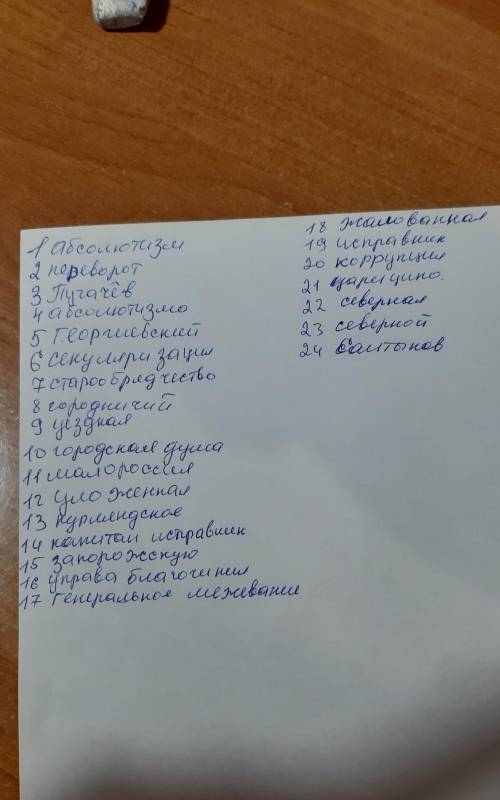 1 абсолютизм
2 переворот
3 Пугачёв
4 абсолютизмо
5 Георгиевский
6 Секуляризация
7 старообрядчество
8 городничий
9 уездная
10 городская дума
11 малороссия
12 уложенная
13 курляндское
14 капитан исправник
15 запорожскую
16 управа благочиния
17 генеральное межевание
18 жалованная
19 исправник
20 коррупция
21 царицино.
22 северная
23 северной
24 Салтыков